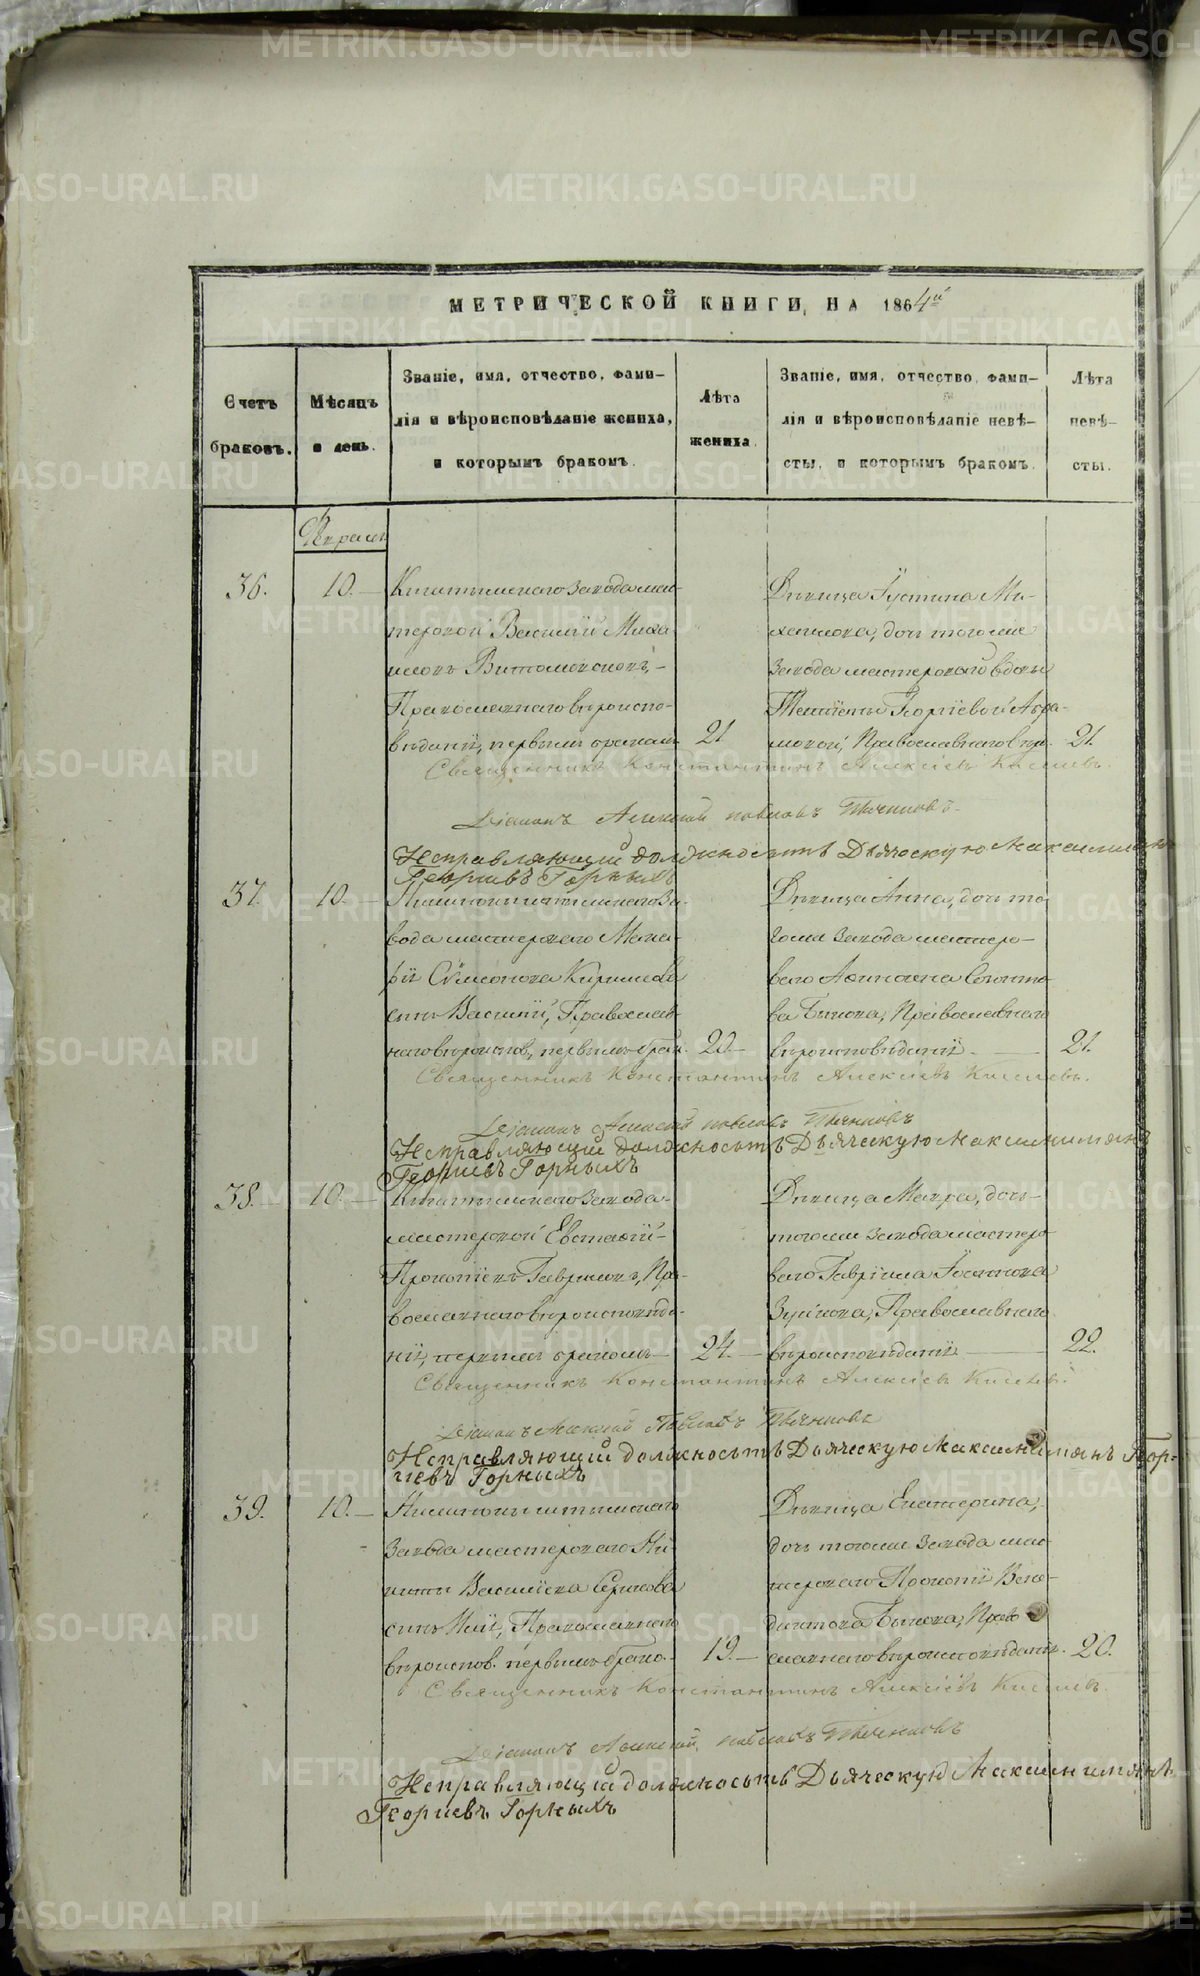 МЕТРИЧЕСКОЙ КНИГИ, НА 1864й
Счетъ браковъ.
Мѣсяцъ и день.
Званіе, имя, отчество, фами-
лія и вѣроисповѣданіе жениха,
и которымъ бракомъ.
Лѣта жениха.
Званіе, имя, отчество, фами-
лія и вѣроисповѣданіе невѣ-
сты, и которымъ бракомъ.
Лѣта невѣ-
сты.
36.
10.
Кыштымскаго Завода мас-
теровой Василий Миха
Православнаго вѣроиспо-
вѣданія, первымъ бракомъ
21
Дѣвица Іустина Ми-
дочь тогоже
Завода мастероваго вдовы
Православнаго вѣро.
21.
Священникъ Константинъ Алексіевъ Киселевъ.
Діаконъ Алексѣй Павловъ
Исправляющій должность Дьяческую Максимилианъ
Георгиевъ Горныхъ
37.
10.
Нижнекыштымскаго За-
вода мастероваго Мака-
рія Сѵмеонова
сынъ Василій, Православ-
наго вѣроиспов., первымъ брак.
20.
Дѣвица Анна, дочь то-
гоже Завода мастеро-
ваго
ва Быкова, Православнаго
вѣроисповѣданія
21.
Священникъ Константинъ Алексіевъ Киселевъ.
Діаконъ Алексѣй Павловъ
Исправляющій должность Дьяческую Максимилианъ
Георгиевъ Горныхъ
38.
10.
Кыштымскаго Завода
мастеровой Евстафій
Прокопіевъ Гавриловъ, Пра-
вославнаго вѣроисповѣда-
нія, первымъ бракомъ
24.
Дѣвица Мавра, дочь
тогоже Завода мастеро-
ваго Гавріила Іоаннова
Зуйкова, Православнаго
вѣроисповѣданія
22.
Священникъ Константинъ Алексіевъ Киселевъ.
Діаконъ Алексѣй Павловъ
Исправляющій должность Дьяческую Максимилианъ Геор-
гіевъ Горныхъ
39.
10.
Нижнекыштымскаго
Завода мастероваго Ни-
киты Василіева
сынъ Илія, Православнаго
вѣроиспов. первымъ брако.
19.
Дѣвица Екатерина,
дочь тогоже Завода мас-
тероваго Прокопія Вене-
диктова Быкова, Право
славнаго вѣроисповѣданія.
20.
Священникъ Константинъ Алексіевъ Киселевъ.
Діаконъ Алексѣй Павловъ
Исправляющій должность Дьяческую Максимилианъ
Георгиевъ Горныхъ
METRIKI.GASO-URAL.RU